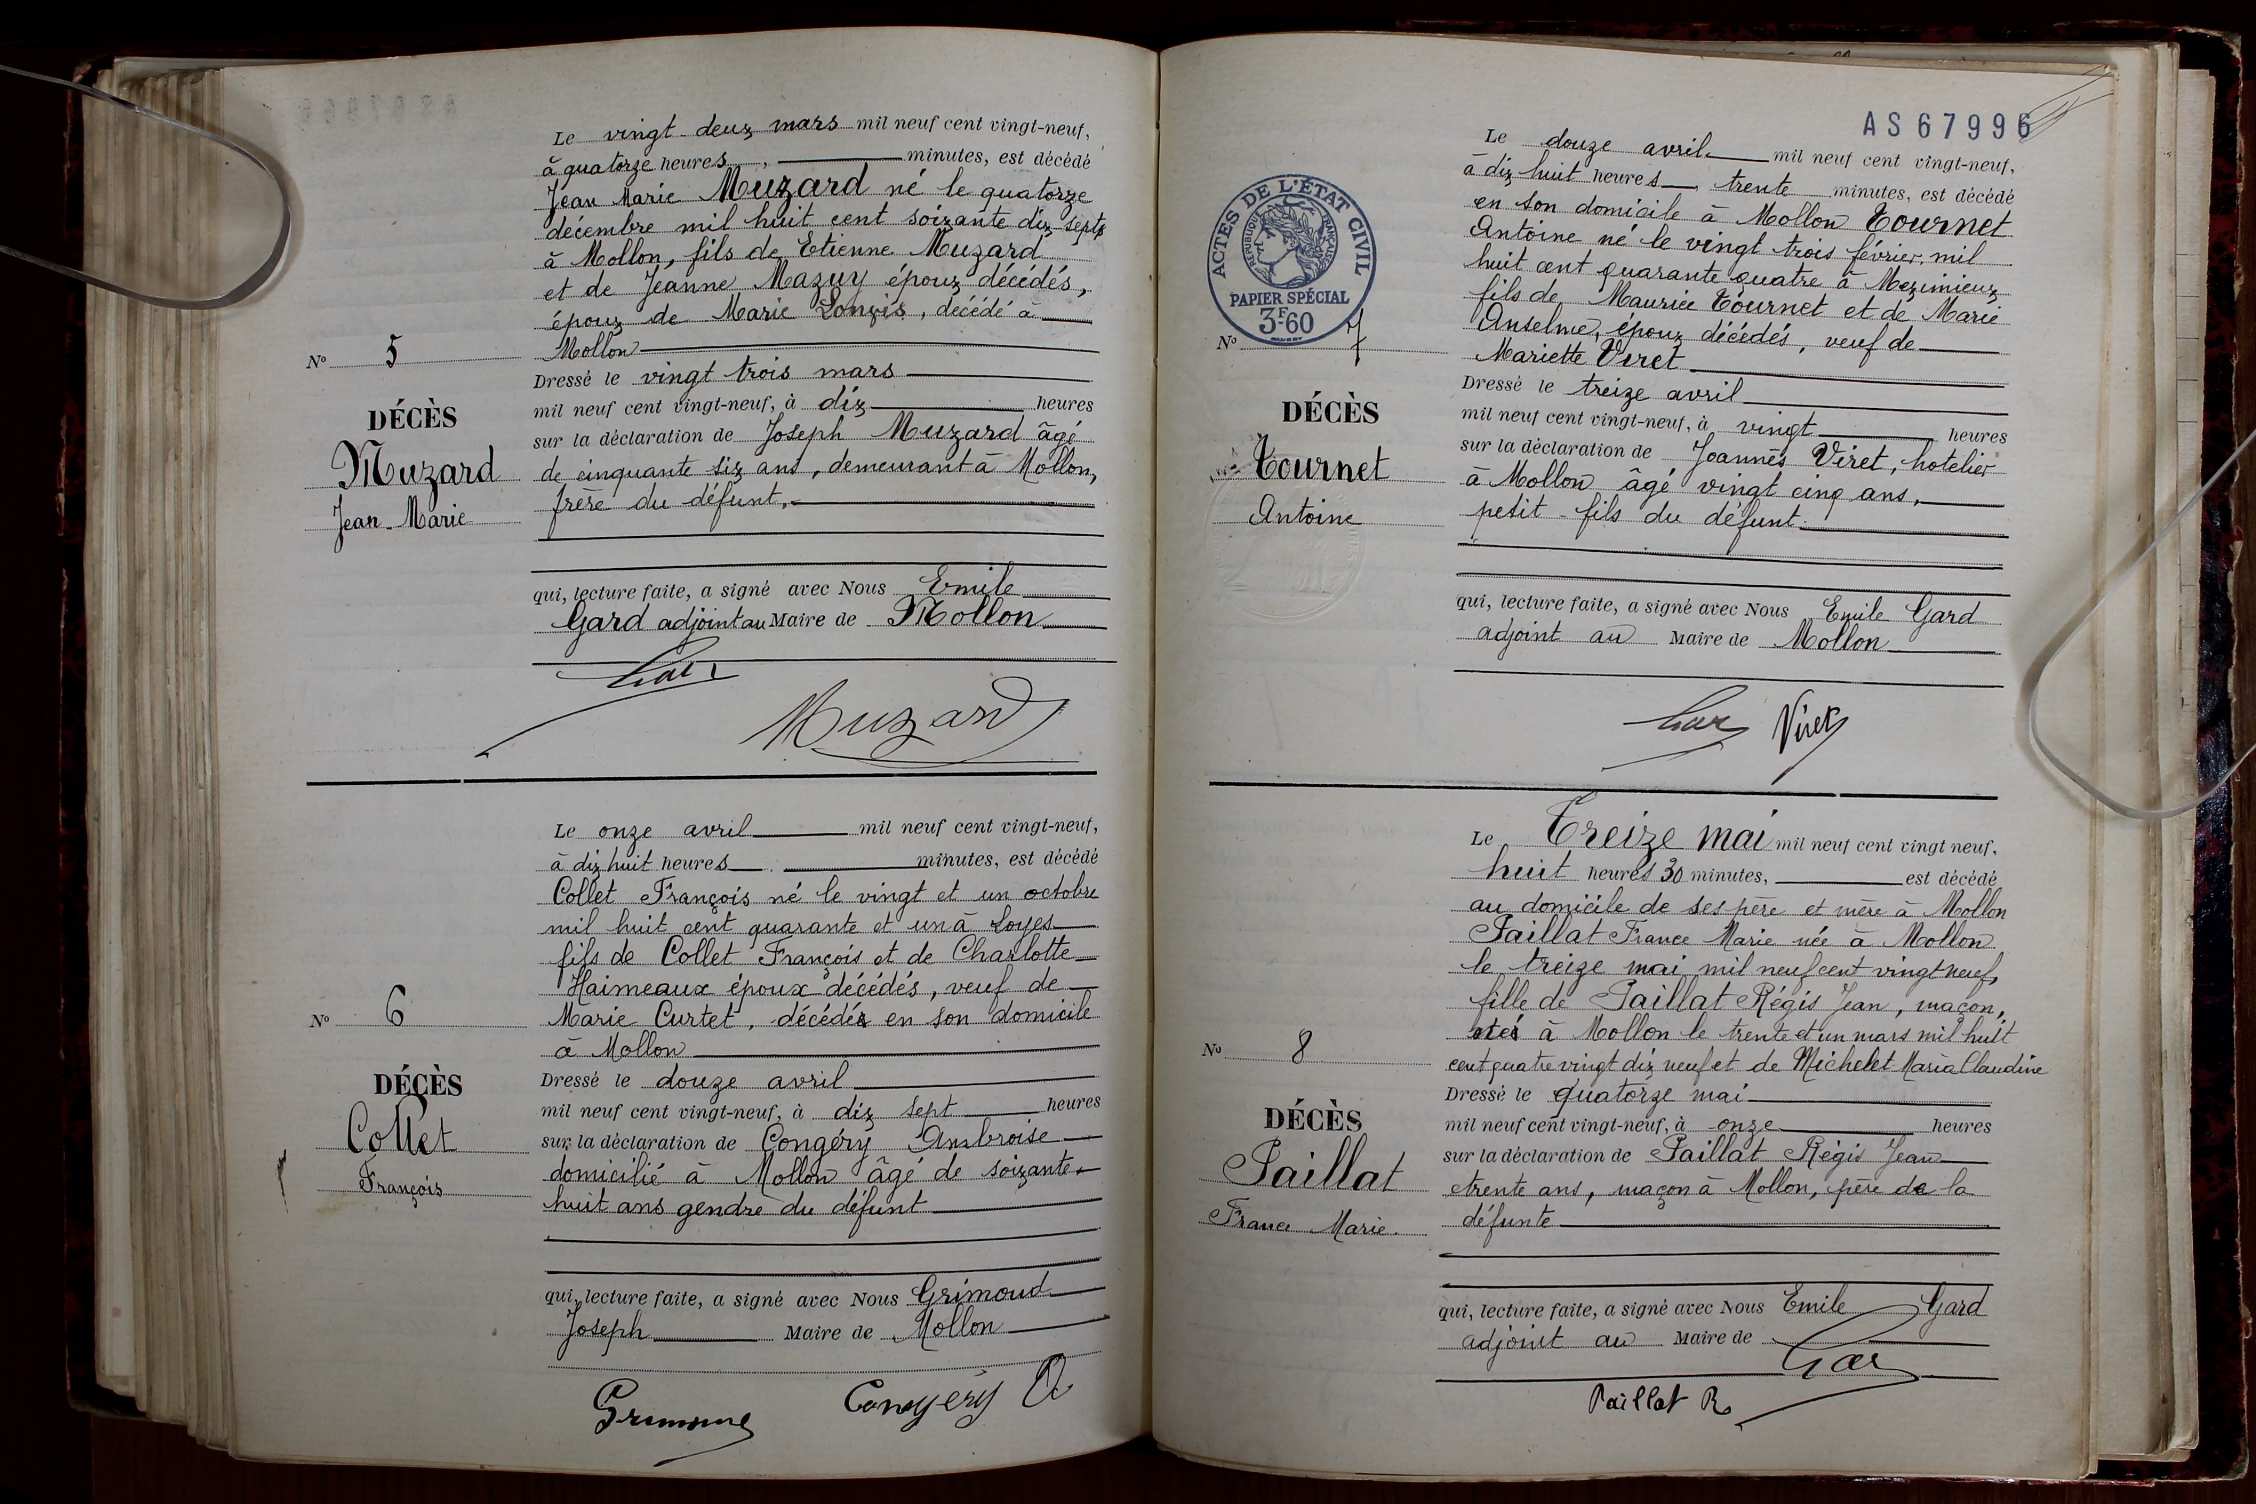 Le vingt-deux mars mil neuf cent vingt-neuf,
à quatorze heures, minutes, est décédé
Jean Marie Muzard né le quatorze
décembre mil huit cent soixante dix-sept
à Mollon, fils de Etienne Muzard
et de Jeanne Mazuy époux décédés,
époux de Marie, décédé à
Mollon
Nº 5
Dressé le vingt trois mars
mil neuf cent vingt-neuf, à dix heures
DÉCÈS
sur la déclaration de Joseph Muzard âgé
Muzard
de cinquante six ans, demeurant à Mollon,
Jean-Marie
frère du défunt.
qui, lecture faite, a signé avec Nous Emile
Gard adjoint au Maire de Mollon
Muzard
Le onze avril mil neuf cent vingt-neuf,
à dix huit heures minutes, est décédé
Collet François né le vingt et un octobre
mil huit cent quarante et un à Loyes
fils de Collet François et de Charlotte
Haimeaux époux décédés, veuf de
Nº 6
Marie Curtet, décédé en son domicile
à Mollon
DÉCÈS
Dressé le douze avril
mil neuf cent vingt-neuf, à dix sept heures
Collet
sur la déclaration de Congéry Ambroise
François
domicilié à Mollon âgé de soixante
huit ans gendre du défunt
qui, lecture faite, a signé avec Nous Grimoud
Joseph Maire de Mollon
Congéry A
AS67996
Le douze avril mil neuf cent vingt-neuf,
à dix huit heures trente minutes, est décédé
en son domicile à Mollon Tournet
Antoine né le vingt trois février, mil
huit cent quarante quatre à Meximieux
fils de Maurice Tournet et de Marie
Anselme, époux décédés, veuf de
Mariette Viret
ACTES DE L'ÉTAT CIVIL
RÉPUBLIQUE FRANÇAISE
PAPIER SPÉCIAL
3F60
Nº 7
Dressé le treize avril
mil neuf cent vingt-neuf, à vingt heures
DÉCÈS
sur la déclaration de Joannès Viret, hotelier
Tournet
à Mollon âgé vingt cinq ans,
Antoine
petit-fils du défunt.
qui, lecture faite, a signé avec Nous Emile Gard
adjoint au Maire de Mollon
Viret
Le Treize mai mil neuf cent vingt neuf,
huit heures 30 minutes, est décédé
au domicile de ses père et mère à Mollon
Paillat France Marie née à Mollon
le treize mai mil neuf cent vingt neuf,
fille de Paillat Régis Jean, maçon,
à Mollon le trente et un mars mil huit
Nº 8
cent quatre vingt dix neuf et de Michelet Maria Claudine
Dressé le quatorze mai
DÉCÈS
mil neuf cent vingt-neuf, à onze heures
Paillat
sur la déclaration de Paillat Régis Jean
France Marie.
trente ans, maçon à Mollon, père de la
défunte
qui, lecture faite, a signé avec Nous Emile Gard
adjoint au Maire de
Paillat R